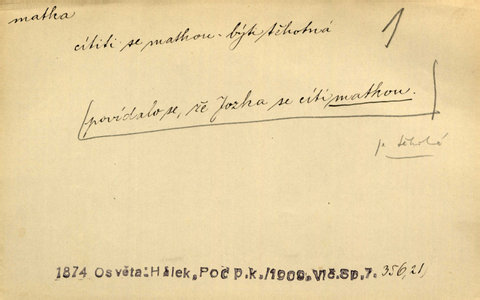 matka
1
cítiti se matkou - býti těhotná
(povídalo se, že Jozka se cítí matkou.
je těhotná
1874 Osvěta: Hálek, Poč p.k./1909. Vlč. Sp. 7. 356,21,